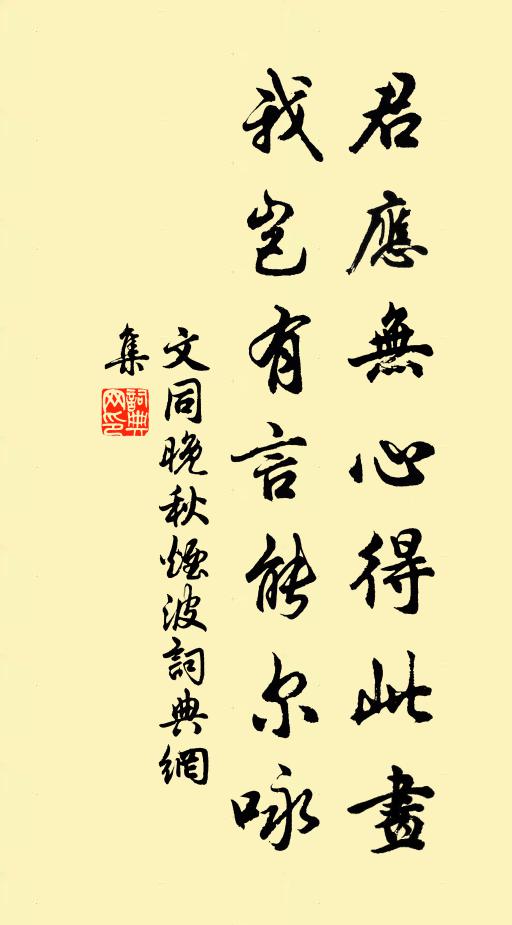 君應無心得此畫
我豈有言能尔咏
文同晚秋煙波詞典網
集
詞典
网印